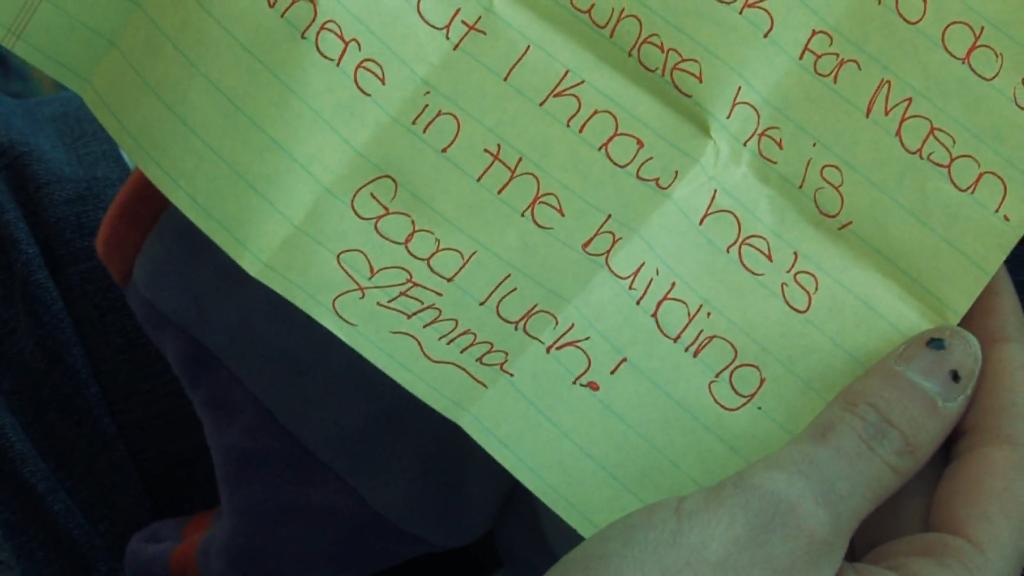 to do
for Mason.
where he is,
but I know he's
in the building.
Good luck!
Emma